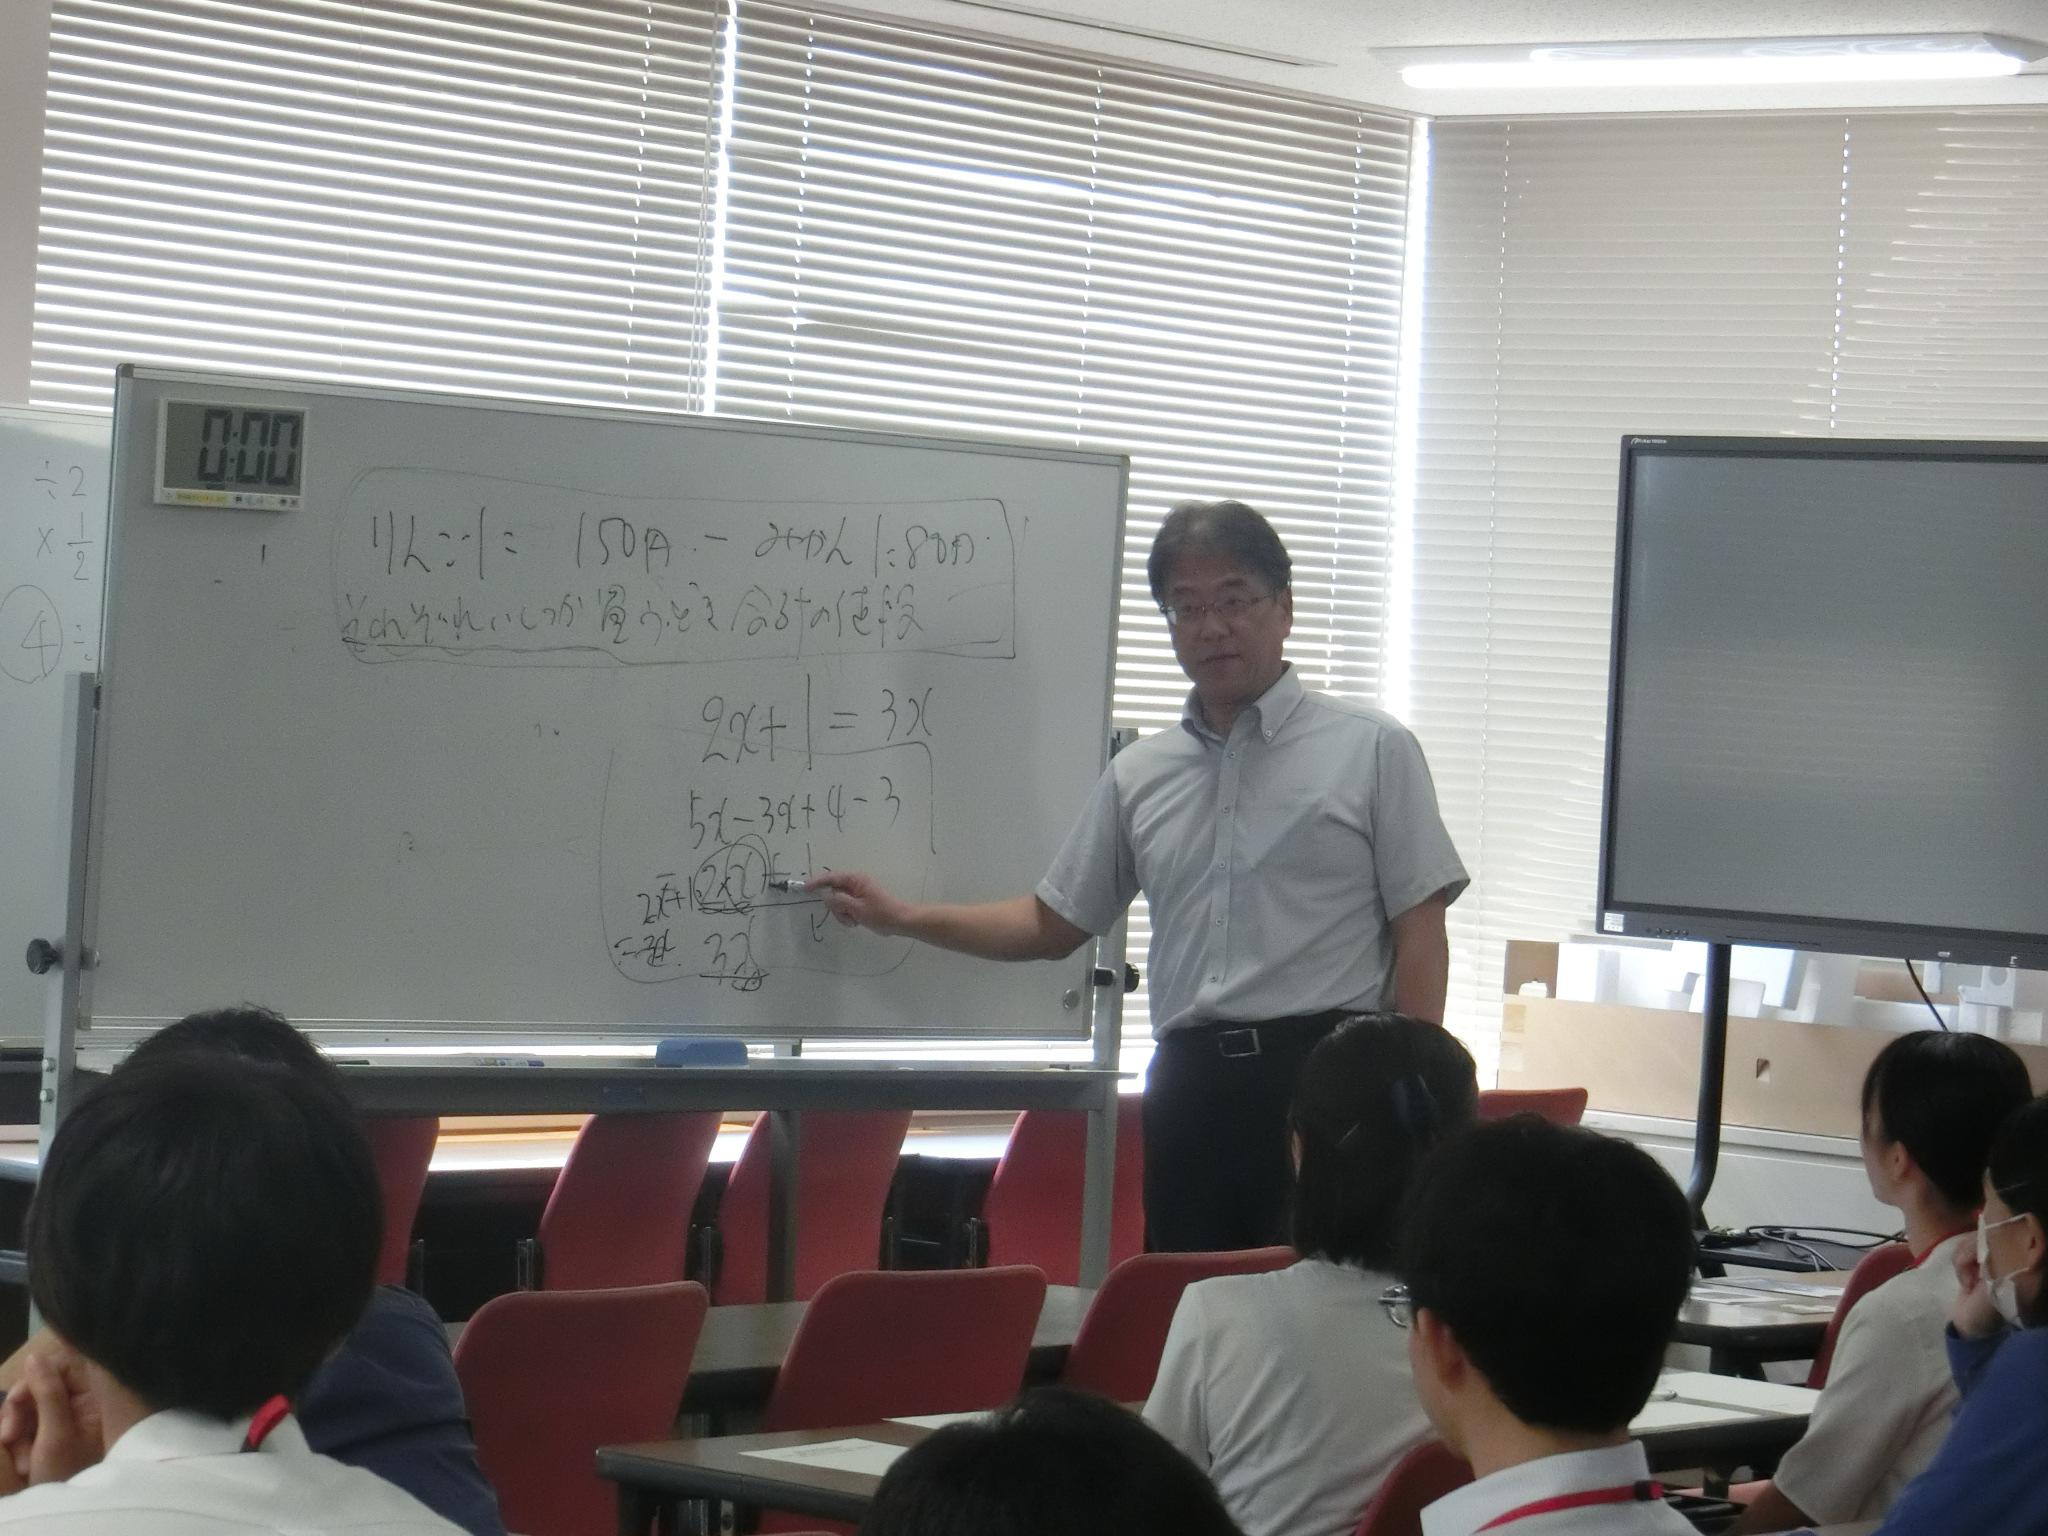 0:00
÷2
×1/2
4
りんご1コ150円 ー みかん1コ80円
それぞれいくつか買うとき合計の値段
2x+1=3x
5x-3x+4-3
=2x+1
2x+1
=3x
3x